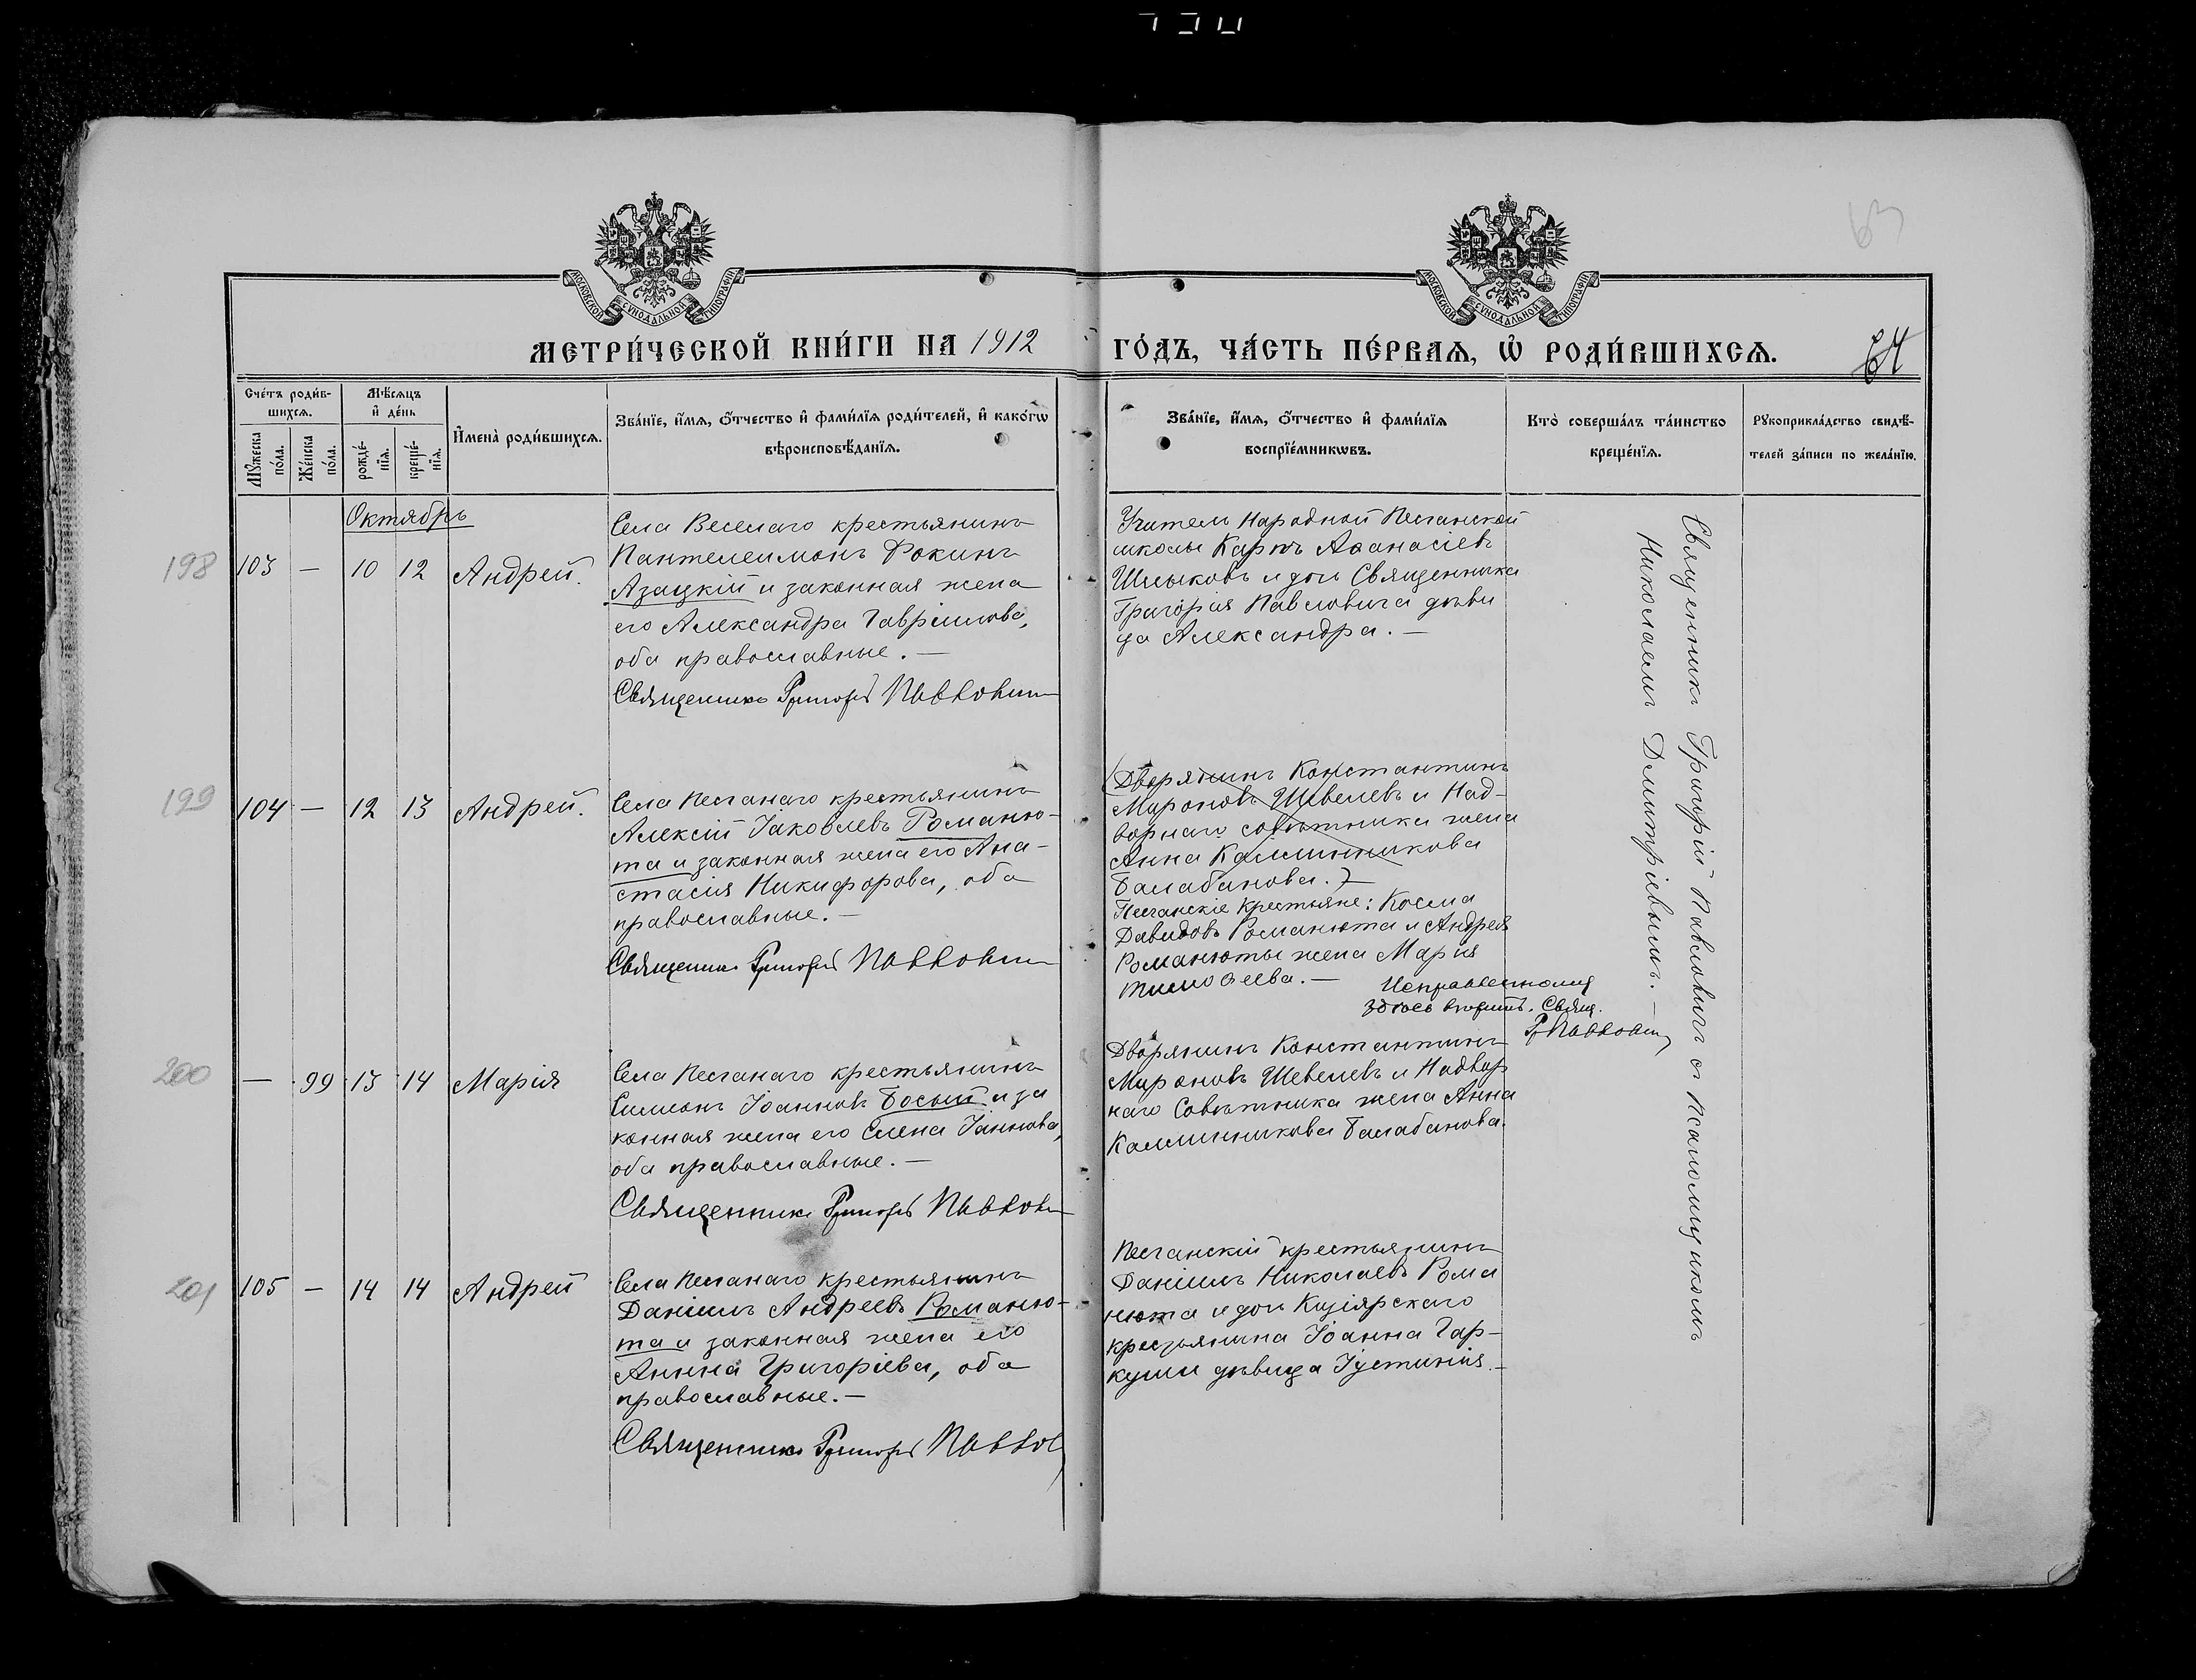 63
МОСКОВСКОЙ СѴНОДАЛЬНОЙ ТИПОГРАФІИ
МОСКОВСКОЙ СѴНОДАЛЬНОЙ ТИПОГРАФІИ
МЕТРИ́ЧЕСКОЙ КНИ́ГИ НА 1912
ГО́ДЪ, ЧА́СТЬ ПЕ́РВАѦ, Ѡ҆ РОДИ́ВШИХСѦ.
64
Сче́тъ роди́в-
шихсѧ.
Мѣ́сѧцъ
и҆ де́нь
Мꙋ́жеска
по́ла.
Же́нска
по́ла.
рожде́-
нїѧ.
креще́-
нїѧ.
И҆мена̀ роди́вшихсѧ.
Зва́нїе, и҆́мѧ, ѻ҆́тчество и҆ фами́лїѧ роди́телей, и҆ како́гѡ
вѣроисповѣ́данїѧ.
Зва́нїе, и҆́мѧ, ѻ҆́тчество и҆ фами́лїѧ
воспрїе́мникѡвъ.
Кто̀ соверша́лъ та́инство
креще́нїѧ.
Рꙋкоприкла́дство свидѣ́-
телей за́писи по жела́нїю.
Октябрь
198 103 — 10 12 Андрей.
Села Веселаго крестьянинъ
Пантелеимонъ Фокинъ
Азацкій и законная жена
его Александра Гавріилова,
оба православные. —
Священникъ Григорій Павловичъ
Учитель Народной Песчанской
школы Карпъ Аѳанасіевъ
Шлыковъ и дочь Священника
Григорія Павловича дѣви
ца Александра. —
199 104 — 12 13 Андрей.
Села Песчанаго крестьянинъ
Алексій Іаковлевъ Романю-
та и законная жена его Ана-
стасія Никифорова, оба
православные. —
Священникъ Григорій Павловичъ
(Дворянинъ Константинъ
Мироновъ Шевелевъ и Над-
ворнаго совѣтника жена
Анна Каллинникова
Балабанова.) —
Песчанскіе крестьяне: Косма
Давидовъ Романюта и Андрея
Романюты жена Марія
Тимоѳеева. —
Исправленному
здѣсь вѣрить. Свящ.
Гр Павлович
200 — 99 13 14 Марія
Села Песчанаго крестьянинъ
Симеонъ Іоанновъ Босый и за
конная жена его Елена Іаннова,
оба православные. —
Священникъ Григорій Павлович
Дворянинъ Константинъ
Мироновъ Шевелевъ и Надвор
наго Совѣтника жена Анна
Каллинникова Балабанова.
201 105 — 14 14 Андрей
Села Песчанаго крестьянинъ
Даніилъ Андреевъ Романю-
та и законная жена его
Анна Григоріева, оба
православные. —
Священникъ Григорій Павлов
Песчанскій крестьянинъ
Даніилъ Николаевъ Рома
нюта и дочь Кизіярскаго
крестьянина Іоанна Гар-
куши дѣвица Іустинія. —
Священникъ Григорій Павловичъ с псаломщикомъ
Николаемъ Димитріевымъ. —